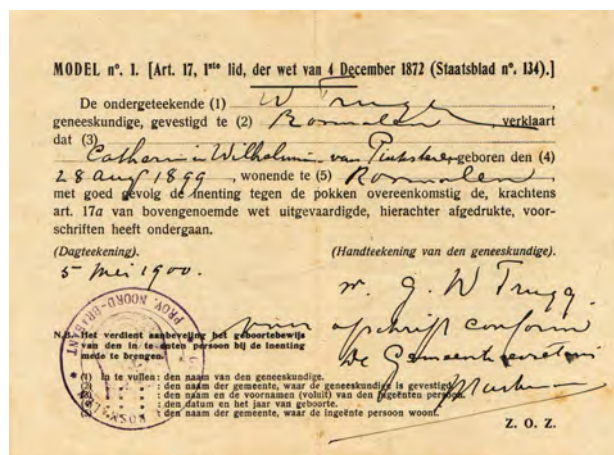 MODEL nº. 1. [Art. 17, 1ste lid, der wet van 4 December 1872 (Staatsblad nº. 134).]
De ondergeteekende (1) W
geneeskundige, gevestigd te (2) Rosmalen, verklaart
dat (3)
Catharin Wilhelmin van geboren den (4)
28 aug 1899, wonende te (5) Rosmalen,
met goed gevolg de inenting tegen de pokken overeenkomstig de, krachtens
art. 17a van bovengenoemde wet uitgevaardigde, hierachter afgedrukte, voor-
schriften heeft ondergaan.
(Dagteekening). (Handteekening van den geneeskundige).
5 Mei 1900. G. W
PROV. NOORD-BRABANT
N.B. Het verdient aanbeveling het geboortebewijs
van den in te enten persoon bij de inenting
mede te brengen.
voor afschrift conform
De Gemeentesecretaris
(1) In te vullen: den naam van den geneeskundige.
(2) : den naam der gemeente, waar de geneeskundige is gevestigd.
(3) : den naam en de voornamen (voluit) van den ingeënten persoon.
(4) : den datum en het jaar van geboorte.
(5) : den naam der gemeente, waar de ingeënte persoon woont.
Z. O. Z.